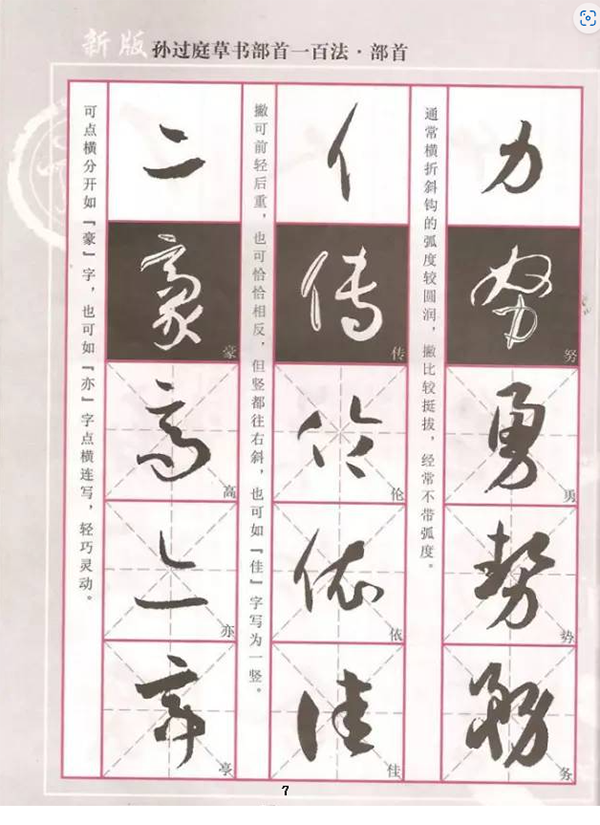 新版 孙过庭草书部首一百法·部首
力
努
努
勇
勇
势
势
务
务
通常横折斜钩的弧度较圆润，撇比较挺拔，经常不带弧度。
亻
传
传
伦
伦
依
依
佳
佳
撇可前轻后重，也可恰恰相反，但竖都往右斜，也可如『佳』字写为一竖。
亠
豪
豪
高
高
亦
亦
亭
亭
可点横分开如『豪』字，也可如『亦』字点横连写，轻巧灵动。
7